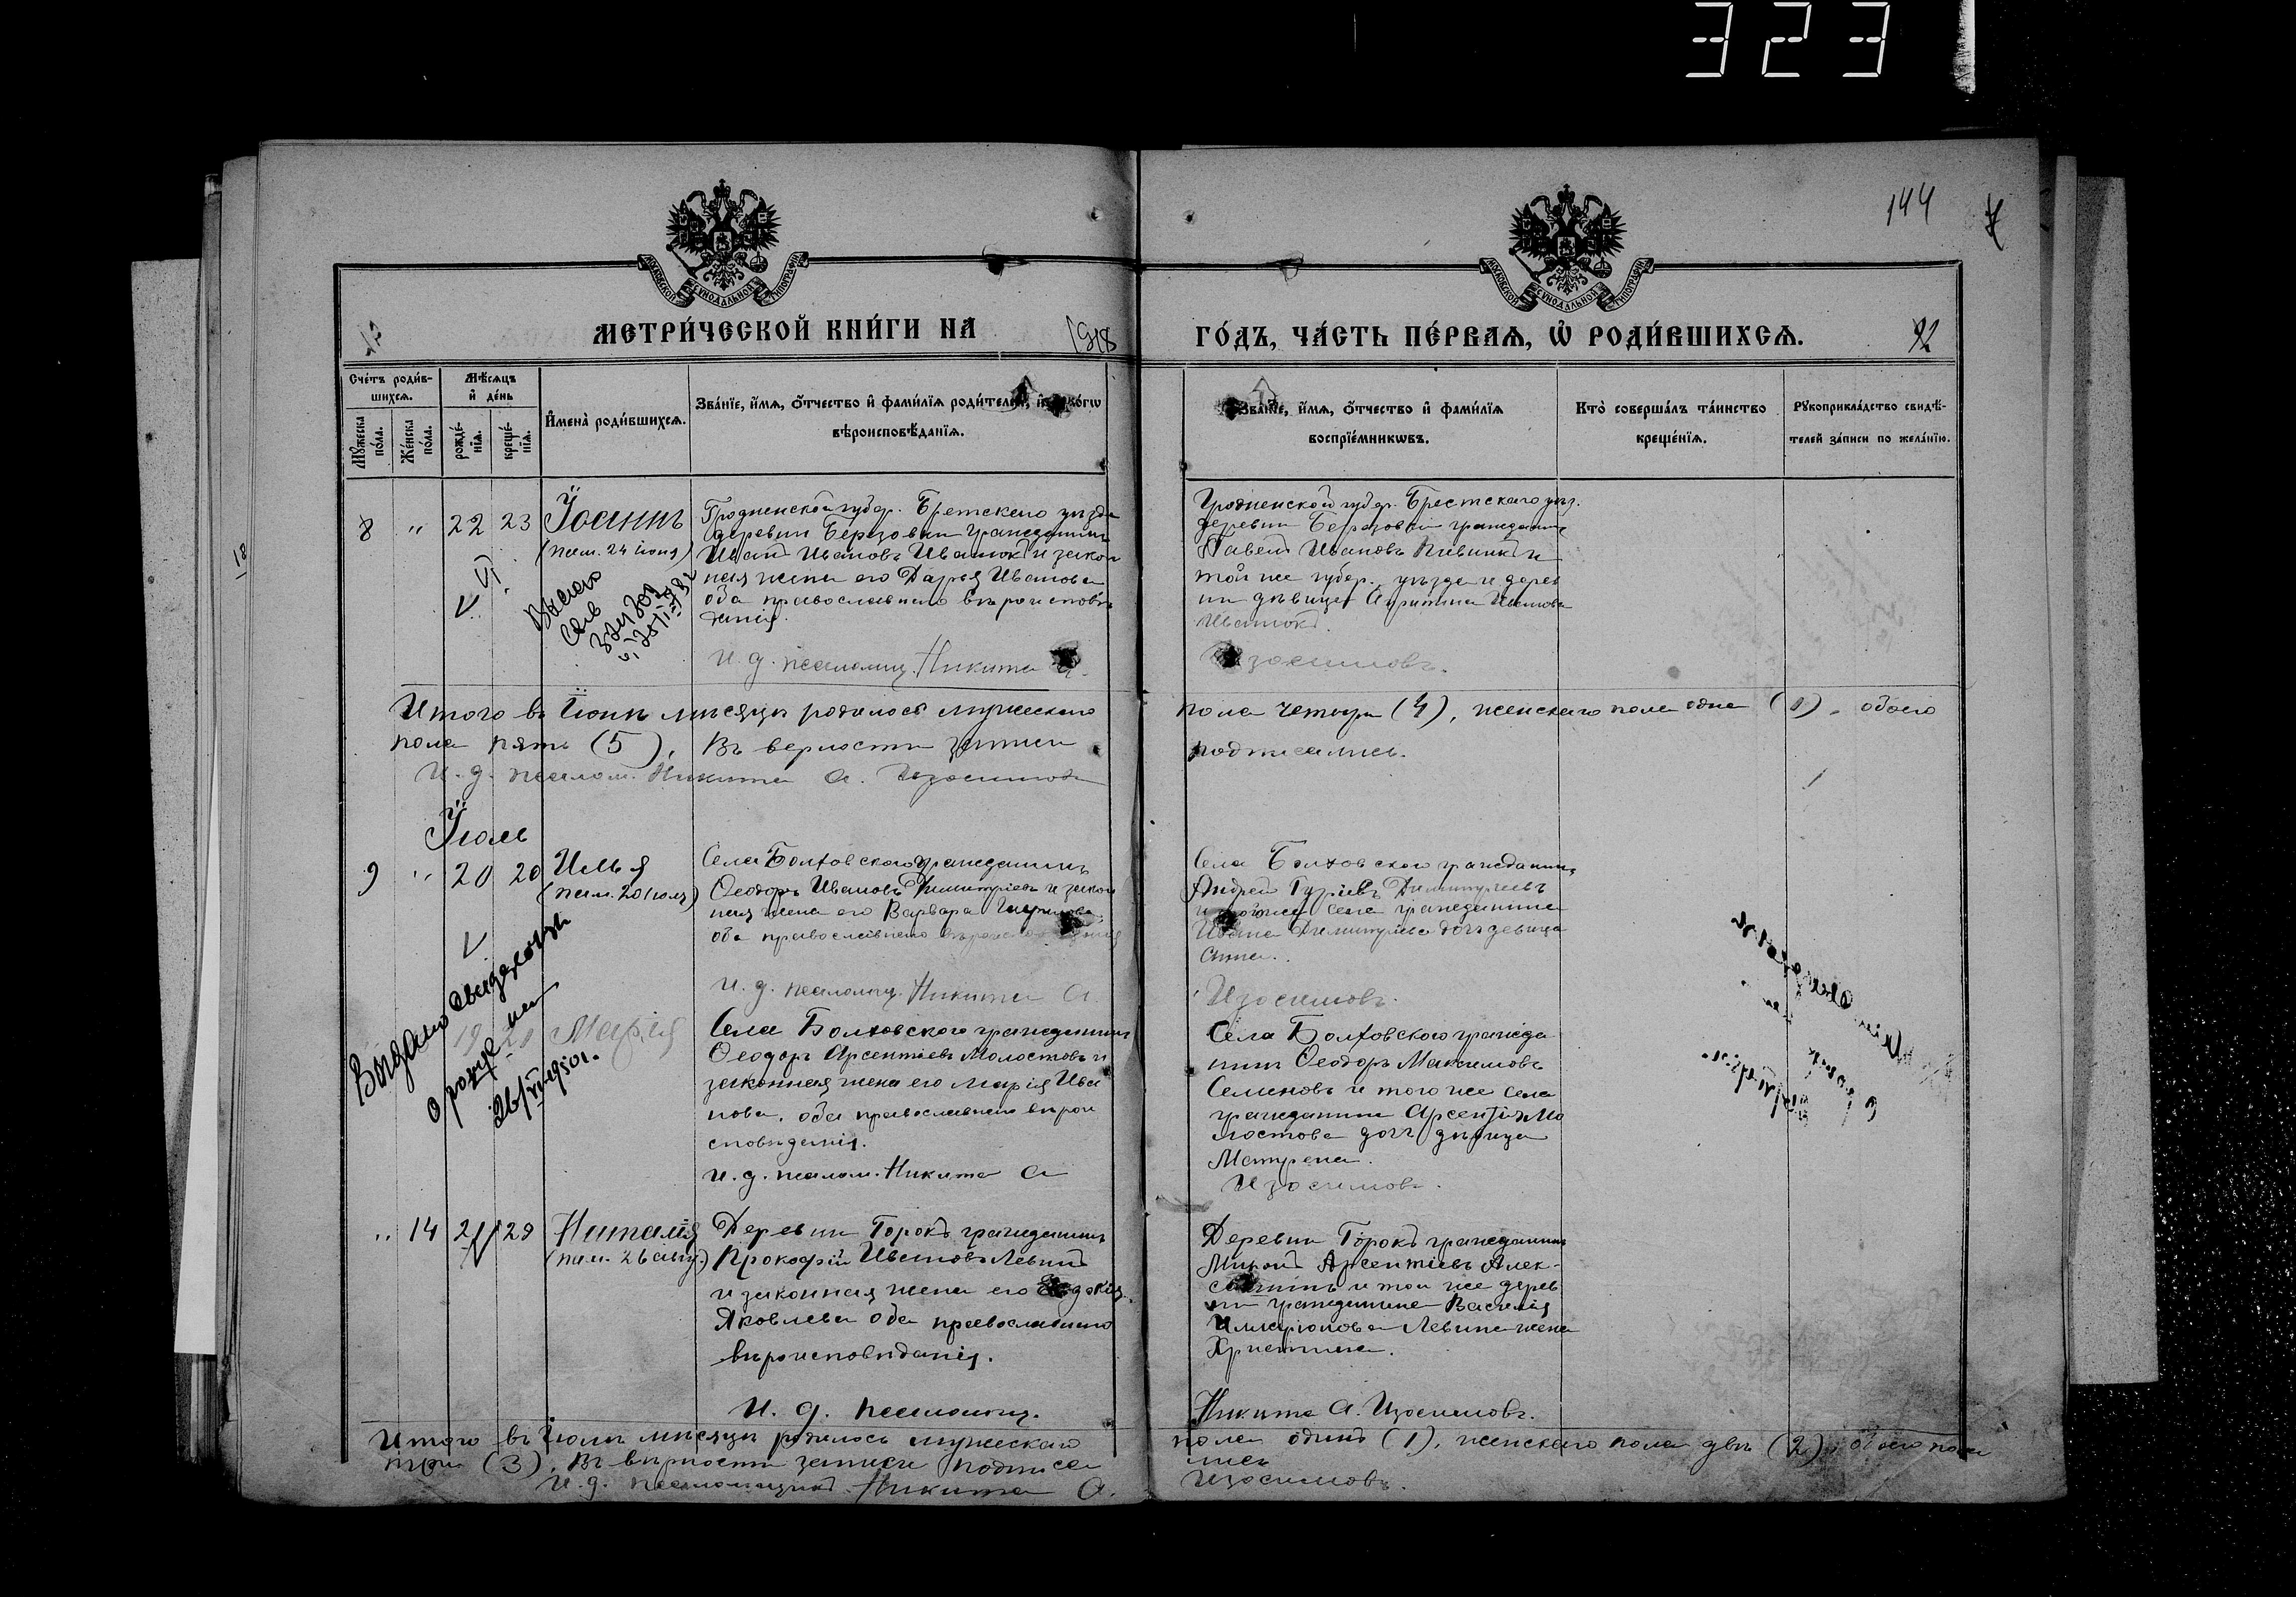 323
144
МОСКОВСКОЙ СѴНОДАЛЬНОЙ ТИПОГРАФІИ
МОСКОВСКОЙ СѴНОДАЛЬНОЙ ТИПОГРАФІИ
МЕТРИ́ЧЕСКОЙ КНИ́ГИ НА 1918 ГО́ДЪ, ЧА́СТЬ ПЕ́РВАѦ, Ѡ РОДИ́ВШИХСѦ. 92
Сче́тъ роди́вшихсѧ.
Мꙋ́жеска по́ла.
Же́нска по́ла.
Мѣ́сѧцъ и҆ де́нь
рожде́нїѧ.
креще́нїѧ.
И҆мена̀ роди́вшихсѧ.
Зва́нїе, и҆́мѧ, ѻ҆́тчество и҆ фамі́лїѧ роди́телей, и҆ како́гѡ
вѣроисповѣ́данїѧ.
Зва́нїе, и҆́мѧ, ѻ҆́тчество и҆ фамі́лїѧ
воспрїе́мникѡвъ.
Кто̀ соверша́лъ та́инство
креще́нїѧ.
Рꙋкоприкла́дство свидѣ́-
телей за́писи по жела́нїю.
8 " 22 23 Іоаннъ
(пам. 24 іюня)
Гродненской губер. Бретскаго уѣзда
деревни Березовки гражданинъ
Иванъ Ивановъ и закон
ная жена его Дарья Иванова
оба православнаго вѣроисповѣ
данія.
И. д. псаломщ. Никита А.
Гродненской губер. Брестскаго уѣз.
деревни Березовки гражданинъ
Павелъ Ивановъ и
той же губер. уѣзда и дерев
ни дѣвица Иванова
Изосимовъ.
VI
Итого въ Іюнѣ мѣсяцѣ родилось мужескаго пола четыре (4), женскаго пола одна (1), обоего
пола пять (5). Въ верности записи подписались.
И. д. псалом. Никита А. Изосимовъ
Іюль
9 " 20 20 Илья
(пам. 20 іюля)
Села Болховского гражданинъ
Ѳеодоръ Ивановъ Димитріевъ и закон
ная жена его Варвара
оба православнаго вѣроисповѣданія
И. д. псаломщ. Никита А.
Села Болховского гражданинъ
Андрей Гурьевъ Димитріевъ
и того же села гражданина
Ивана Димитріева дочь девица
Анна.
Изосимовъ.
Выдано свид.
о рожде нии
19 21 Марія
Села Болховского гражданинъ
Ѳеодоръ Арсентіевъ Молостовъ и
законная жена его Марія Ива
нова, оба православнаго вѣрои
сповѣданія.
И. д. псалом. Никита А
Села Болховского гражда
нинъ Ѳеодоръ Максимовъ
Семеновъ и того же села
гражданина Арсентія Мо
лостова дочь дѣвица
Матрена.
Изосимовъ.
" 14 29 Наталія
(пам. 26 авгу.)
Деревни Горокъ гражданинъ
Прокофій Ивановъ Левинъ
и законная жена его Евдокія
Яковлева оба православнаго
вѣроисповѣданія.
И. д. псаломщ.
Деревни Горокъ гражданинъ
Миронъ Арсентіевъ Алек-
и той же дерев
ни гражданина Василія
Илларіонова Левина жена
Христина.
Никита А. Изосимовъ.
Итого въ Іюлѣ мѣсяцѣ родилось мужескаго пола одинъ (1), женскаго пола двѣ (2), обоего пола
три (3). Въ вѣрности записи подписа лись
И. д. псаломщикъ Никита А. Изосимовъ.